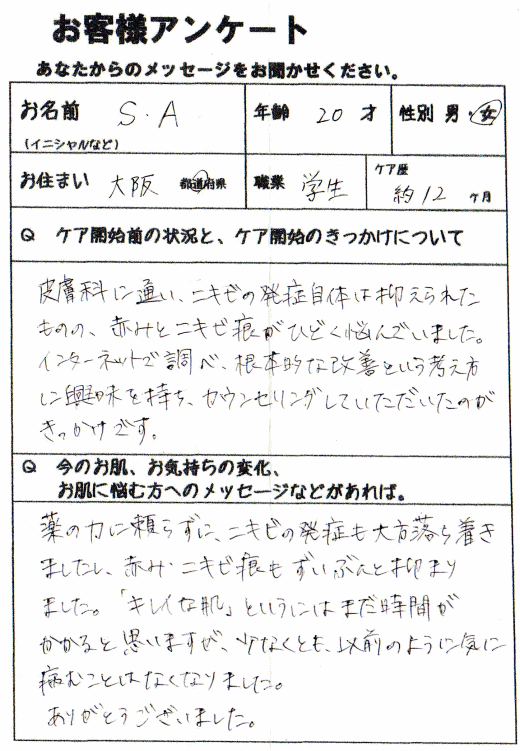 お客様アンケート
あなたからのメッセージをお聞かせください。
お名前 (イニシャルなど) S.A 年齢 20 才 性別 男・女
お住まい 大阪 都道府県 職業 学生 ケア歴 約12 ヶ月
Q ケア開始前の状況と、ケア開始のきっかけについて
皮膚科に通い、ニキビの発症自体は抑えられた
ものの、赤みとニキビ痕がひどく悩んでいました。
インターネットで調べ、根本的な改善という考え方
に興味を持ち、カウンセリングしていただいたのが
きっかけです。
Q 今のお肌、お気持ちの変化、
お肌に悩む方へのメッセージなどがあれば。
薬の力に頼らずに、ニキビの発症も大方落ち着き
ましたし、赤み・ニキビ痕もずいぶんと抑まり
ました。「キレイな肌」というにはまだ時間が
かかると思いますが、少なくとも、以前のように気に
病むことはなくなりました。
ありがとうございました。